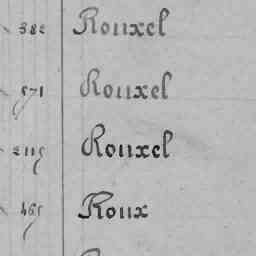 382 Rouxel
571 Rouxel
2115 Rouxel
465 Roux